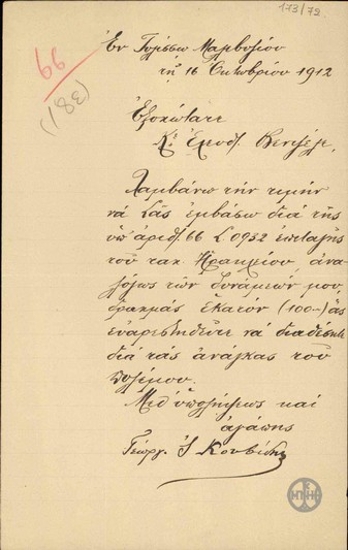 173/72
66
(381)
Ἐν Τυλίσσῳ Μαλεβυζίου
τῇ 16 Ὀκτωβρίου 1912
Ἐξοχώτατε
Κε Ἐλευθ. Βενιζέλε,
Λαμβάνω τὴν τιμὴν
νὰ Σᾶς ἐμβάσω διὰ τῆς
ὑπ' ἀριθ. 66 L 0932 ἐπιταγῆς
τοῦ ταχ. Ἡρακλείου, ἀνα-
λόγως τῶν δυνάμεών μου,
δραχμὰς ἑκατόν (100-) ἃς
εὐαρεστηθεῖτε νὰ διαθέσητε
διὰ τὰς ἀνάγκας τοῦ
πολέμου.
Μεθ' ὑπολήψεως καὶ
ἀγάπης
Γεώργ. Ι Κουβίδης